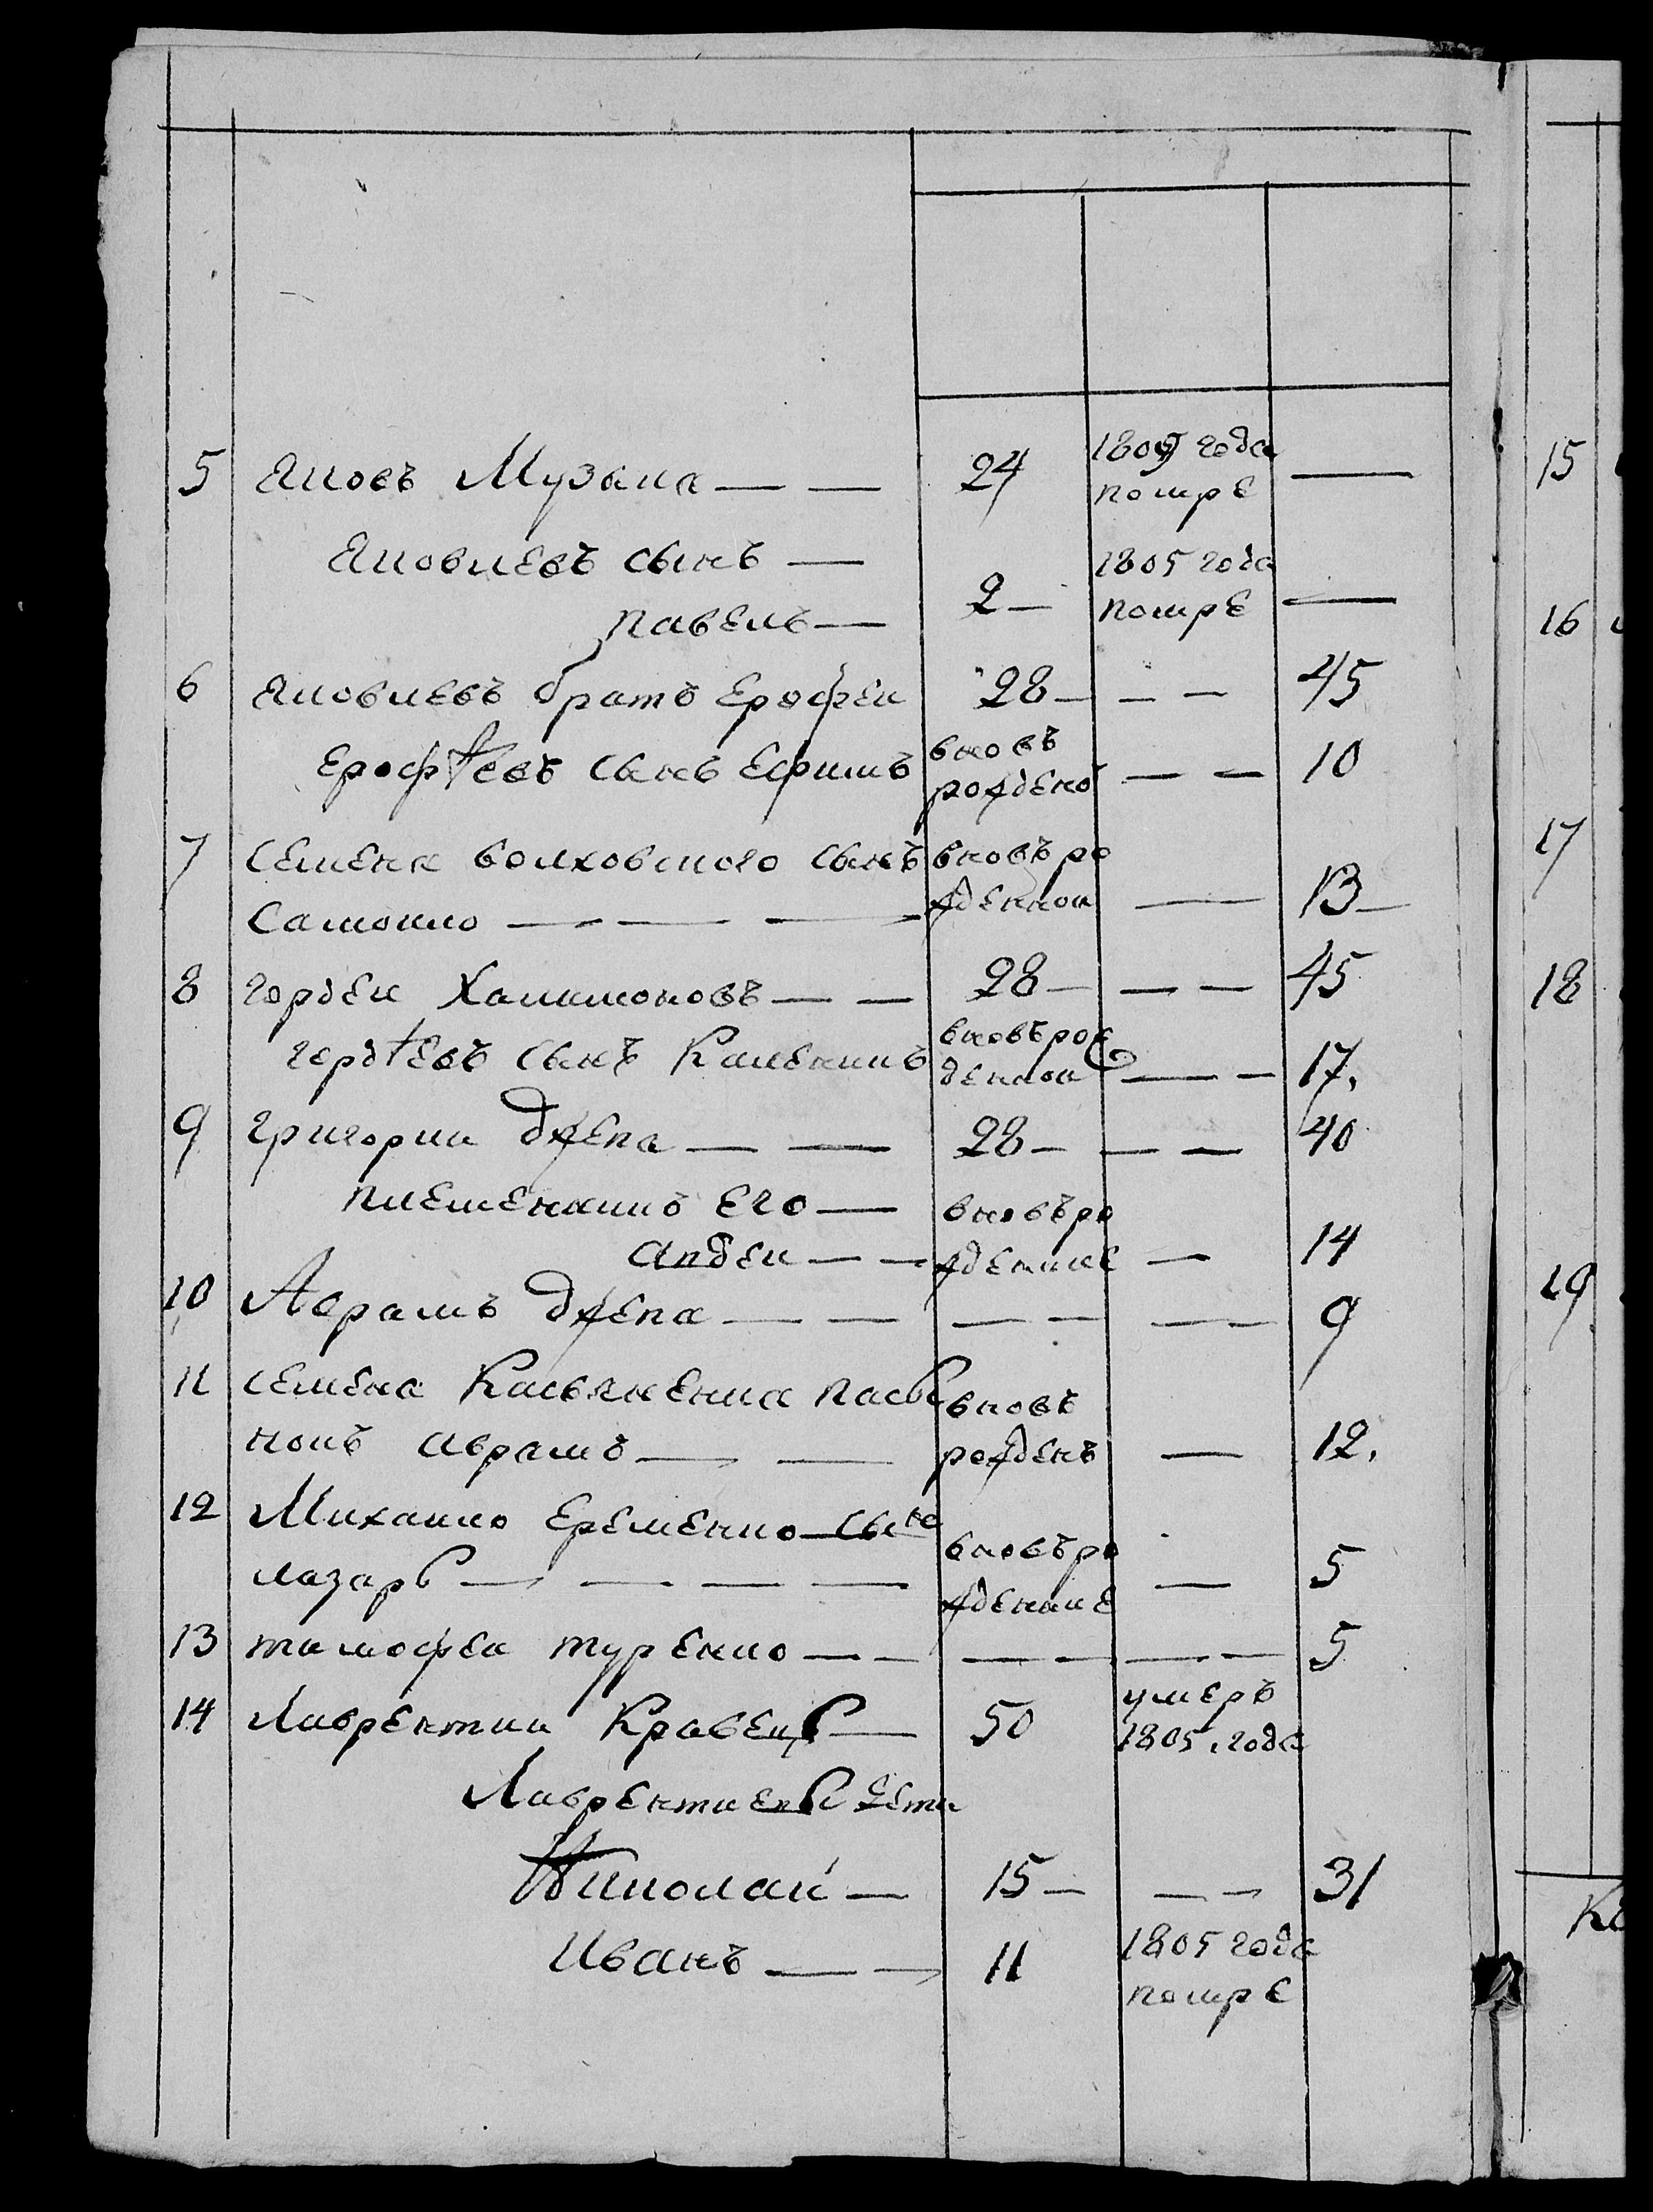 5 Яковъ Музыка — — 24 1805 года помре —
Яковлевъ сынъ —
Павелъ — 2 — 1805 года помре —
6 Яковлевъ братъ Ерофей 28 — — — 45
Ерофѣевъ сынъ Ефимъ вновь рожденъ — — 10
7 Семена волховского сынъ вновъ ро
Самойло — — — жденной — 13 —
8 Гордей Халимоновъ — — 28 — — — 45
Гордѣевъ сынъ Каленикъ вновъ рож денной — — 17.
9 Григорий джепа — — 28 — — — 40
племенникъ его — вновъ ро
Авдей — — жденние — 14
10 Аврамъ джепа — — — — — — 9
11 Семена Касьяненка пасы вновъ
нокъ аврамъ — — рожденъ — 12.
12 Михайло Еременко сынъ
лазарь — — — — вновъ ро жденние — 5
13 тимофей туренко — — — — — — 5
14 Лаврентий Кравецъ — 50 умеръ 1805. года
Лаврентиевы дети
Николай — 15 — — — 31
Иванъ — — 11 1805 года помре
15
16
17
18
19